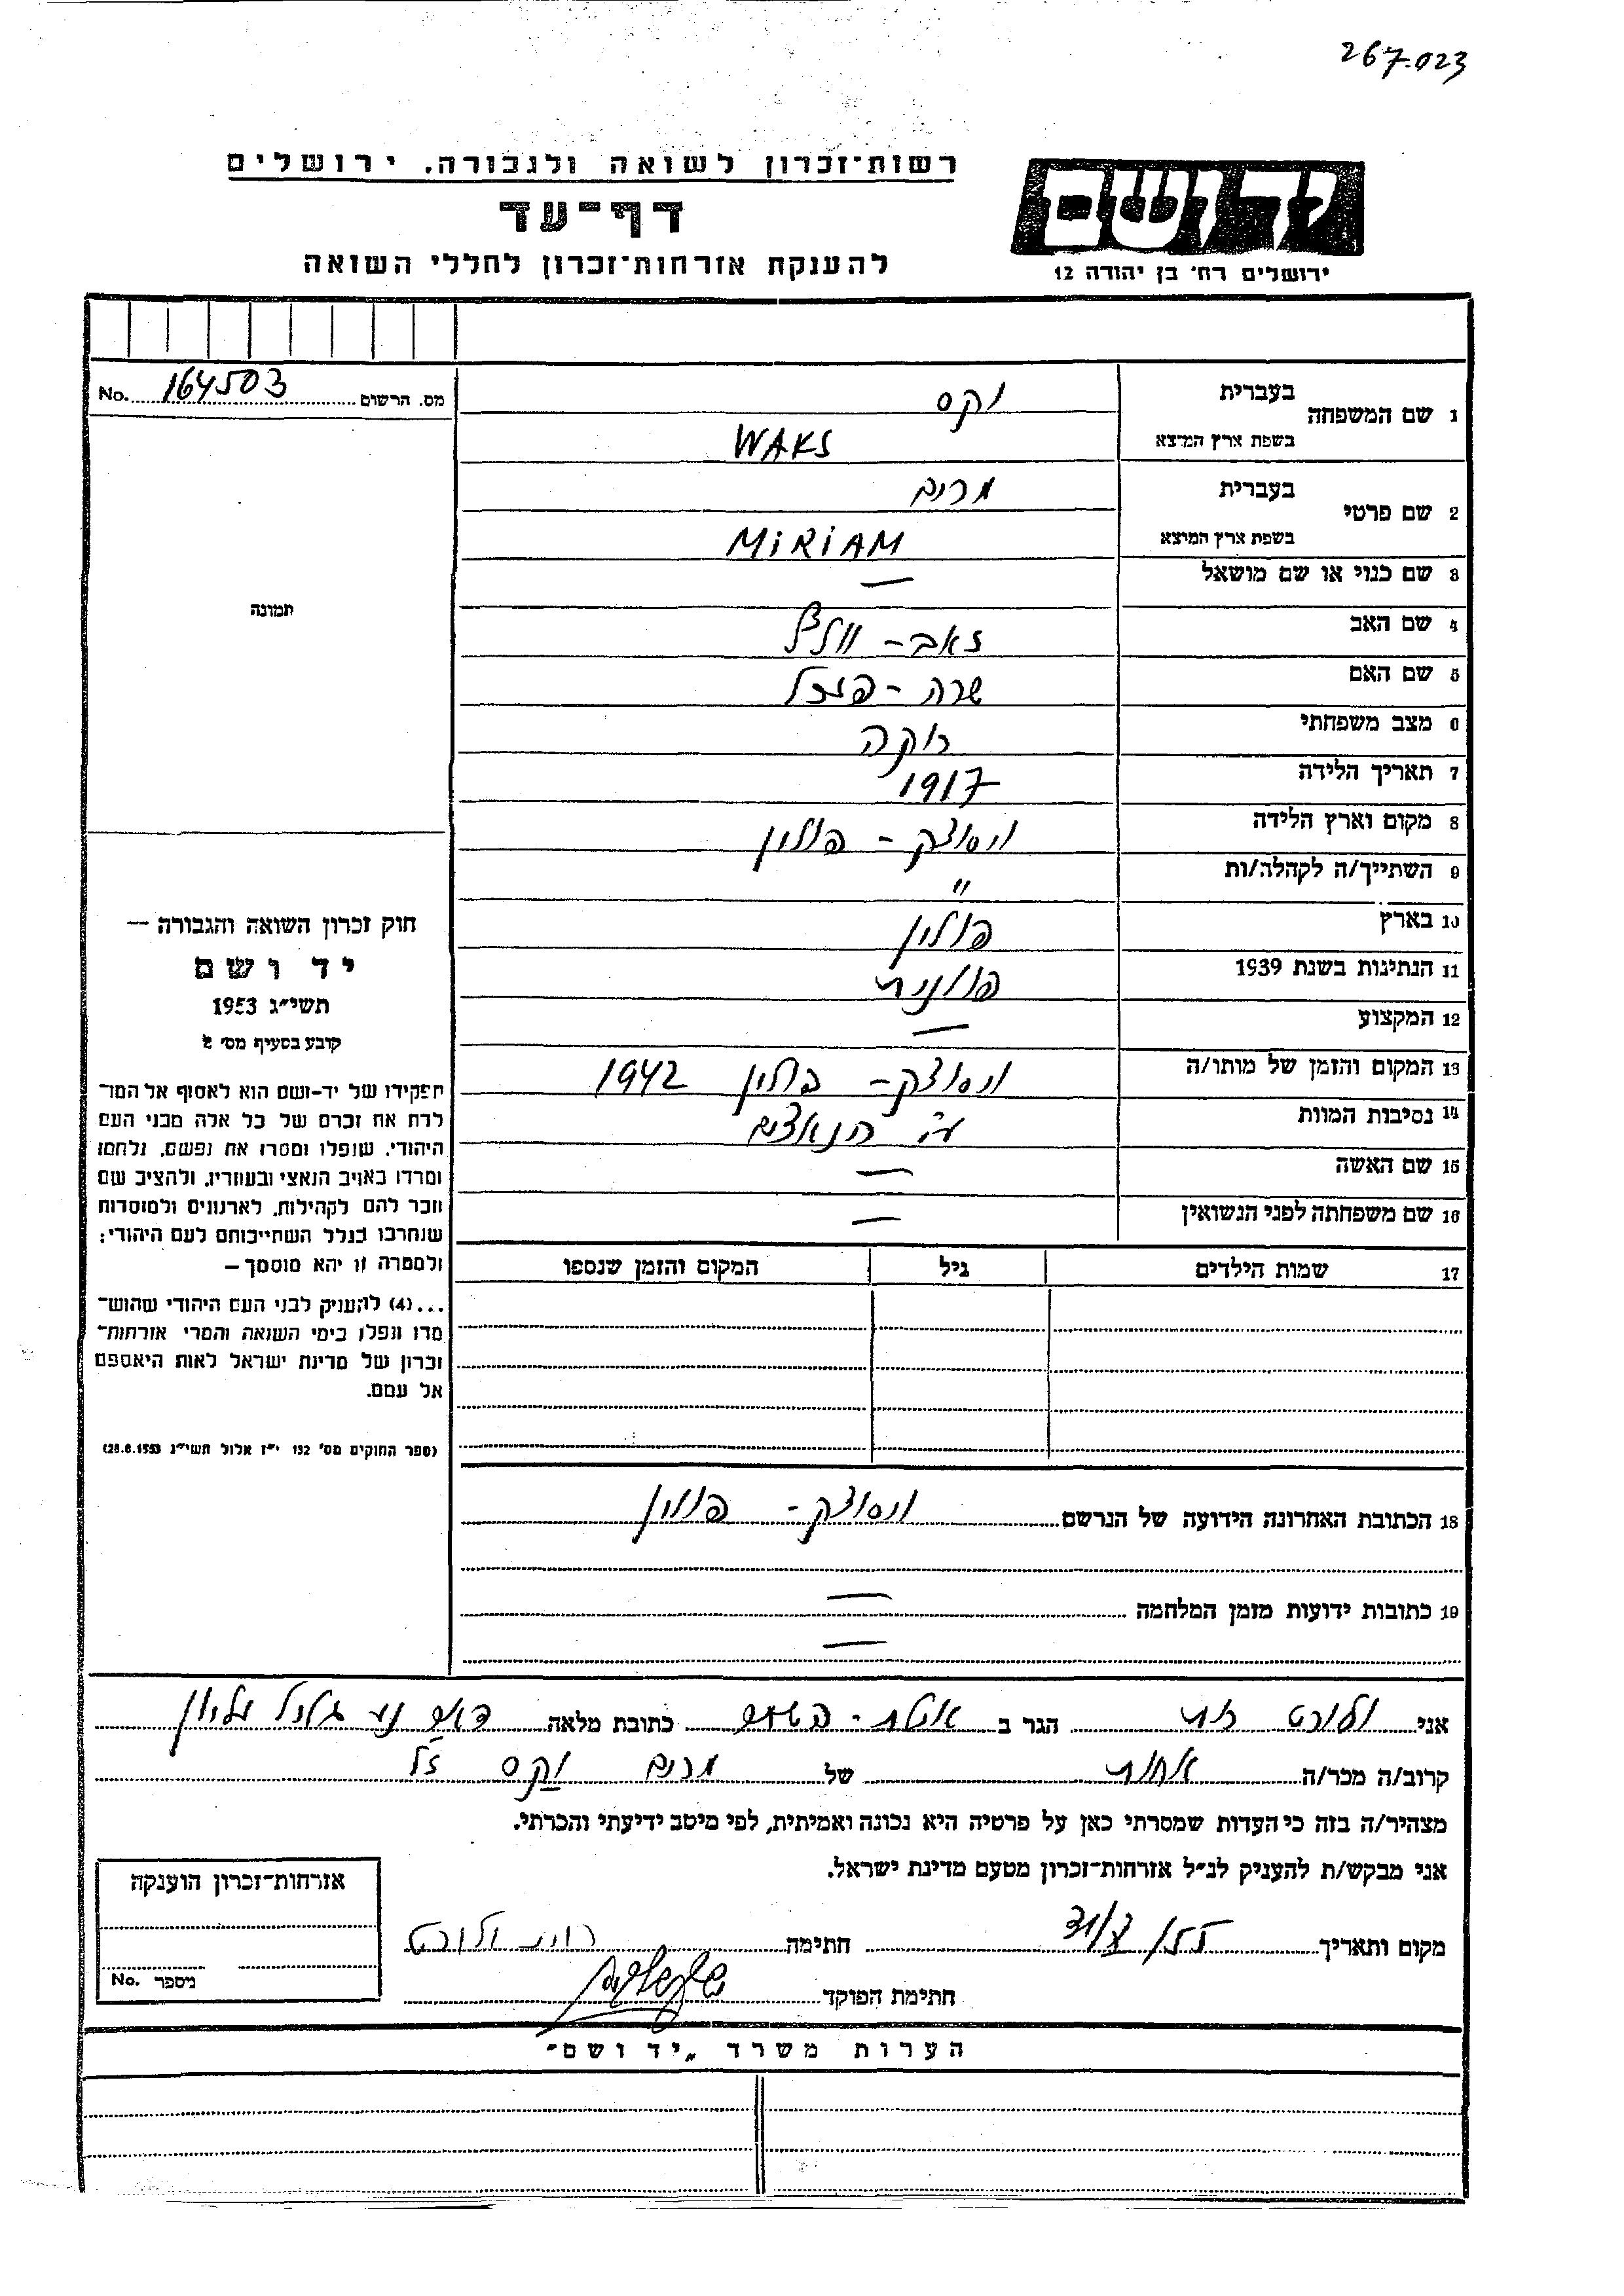 267.023
רשות־זכרון לשואה ולגבורה, ירושלים
דף־עד
להענקת אזרחות־זכרון לחללי השואה
יד ושם
ירושלים רח' בן יהודה 12
מס. הרשום 164503 No.
תמונה
1 שם המשפחה
בעברית וקס
בשפת ארץ המיצא WAKS
2 שם פרטי
בעברית מרים
בשפת ארץ המיצא MiRiAM
3 שם כנוי או שם מושאל —
4 שם האב זאב - וולף
5 שם האם שרה -
6 מצב משפחתי רוקה
7 תאריך הלידה 1917
8 מקום וארץ הלידה ויסוצק - פולין
9 השתייך/ה לקהלה/ות "
10 בארץ פולין
11 הנתינות בשנת 1939 פולנית
12 המקצוע —
13 המקום והזמן של מותו/ה ויסוצק - פולין 1942
14 נסיבות המוות ע"י הנאצים
15 שם האשה —
16 שם משפחתה לפני הנשואין —
17 שמות הילדים גיל המקום והזמן שנספו
חוק זכרון השואה והגבורה —
יד ושם
תשי״ג 1953
קובע בסעיף מס׳ 2
תפקידו של יד-ושם הוא לאסוף אל המו־
לדת את זכרם של כל אלה מבני העם
היהודי, שנפלו ומסרו את נפשם, נלחמו
ומרדו באויב הנאצי ובעוזריו, ולהציב שם
וזכר להם לקהילות, לארגונים ולמוסדות
שנחרבו בגלל השתייכותם לעם היהודי;
ולמטרה זו יהא מוסמך –
...(4) להעניק לבני העם היהודי שהוש־
מדו ונפלו בימי השואה והמרי אזרחות־
זכרון של מדינת ישראל לאות היאספם
אל עמם.
(ספר החוקים מס׳ 132 י״ז אלול תשי״ג 28.8.1953)
18 הכתובת האחרונה הידועה של הנרשם ויסוצק - פולין
19 כתובות ידועות מזמן המלחמה —
—
אני ולורט הגר ב כתובת מלאה גליל עליון
קרוב/ה מכר/ה אחות של מרים וקס ז"ל
מצהיר/ה בזה כי העדות שמסרתי כאן על פרטיה היא נכונה ואמיתית, לפי מיטב ידיעתי והכרתי.
אני מבקש/ת להעניק לנ״ל אזרחות־זכרון מטעם מדינת ישראל.
מקום ותאריך חתימה ולורט
חתימת הפוקד
אזרחות־זכרון הוענקה
מספר No.
הערות משרד „יד ושם״